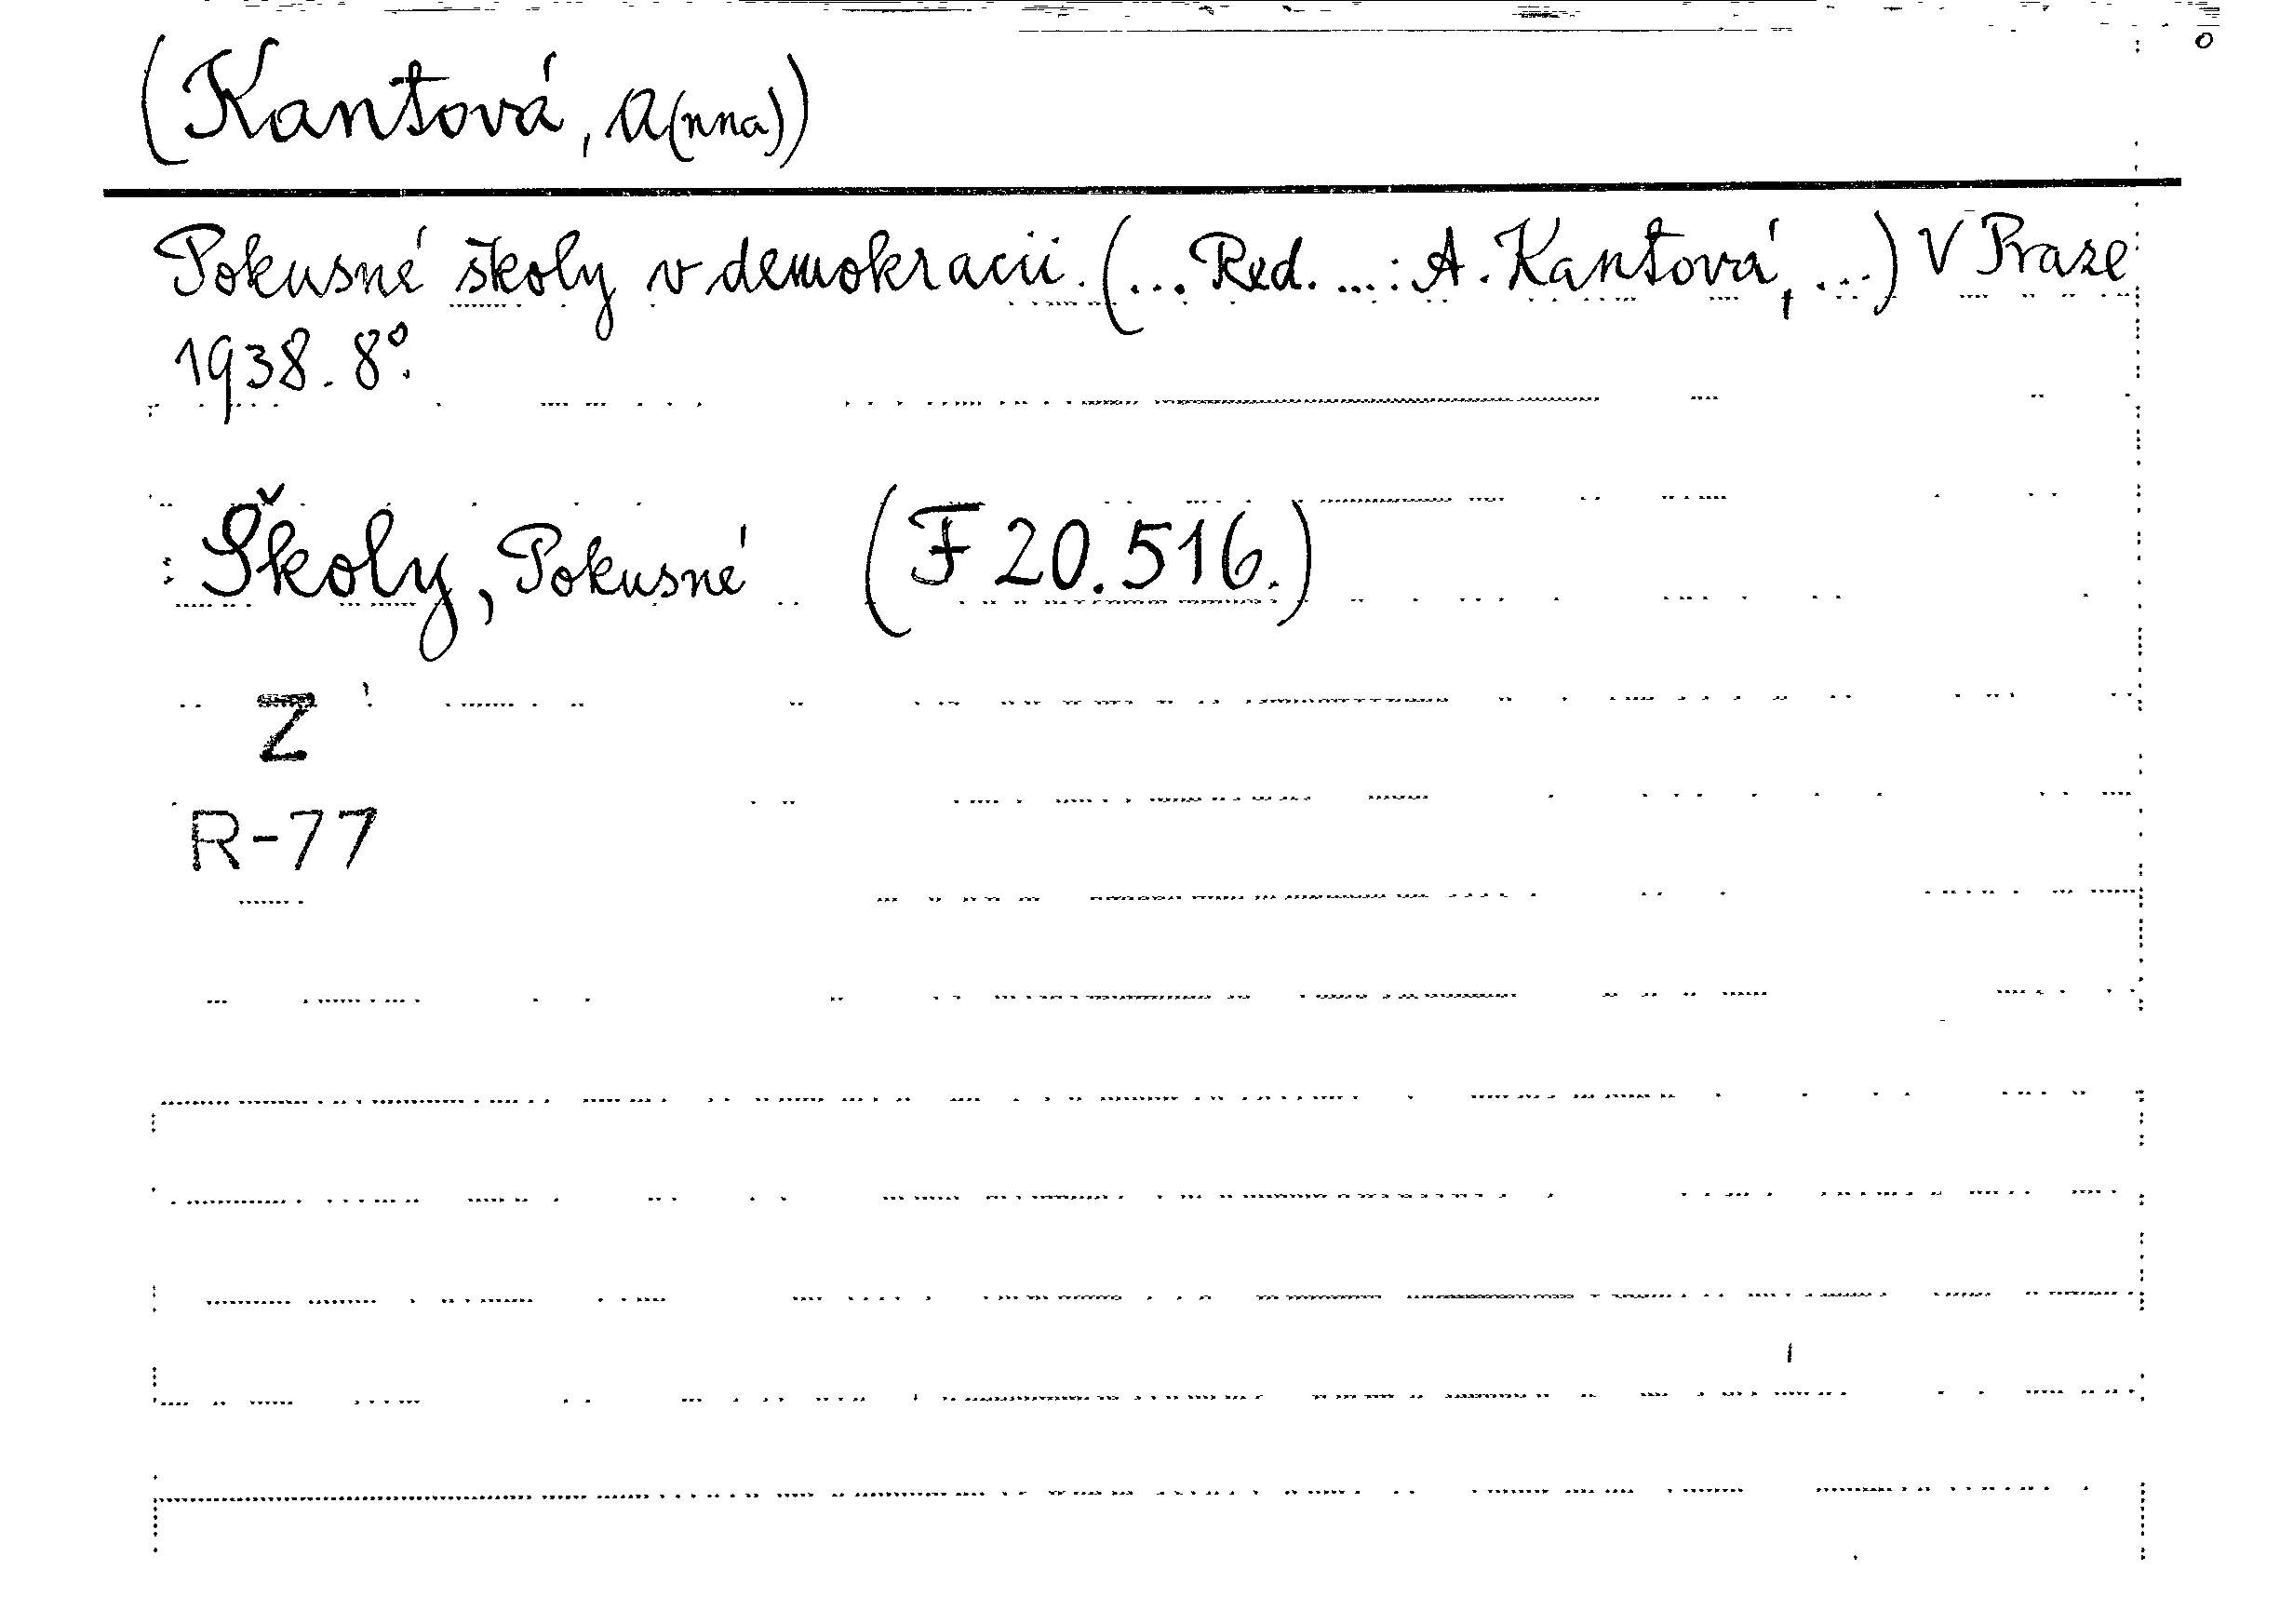 (Kantová, A(nna))
Pokusné školy v demokracii. (... Red. ...: A. Kantová, ...) V Praze
1938. 8°.
Školy, Pokusné (F 20.516.)
Z
R-77